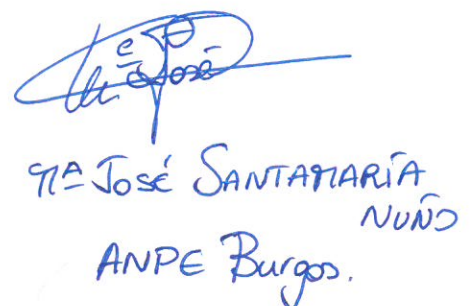 Mª José
Mª José SANTAMARÍA
NUÑO
ANPE Burgos.